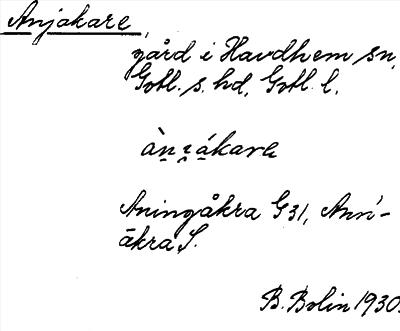 Anjakare,
gård i Havdhem sn,
Gotl. s. hd, Gotl. l.
Aningåkra G31, Anri-
åkra S.
B. Bolin 1930.